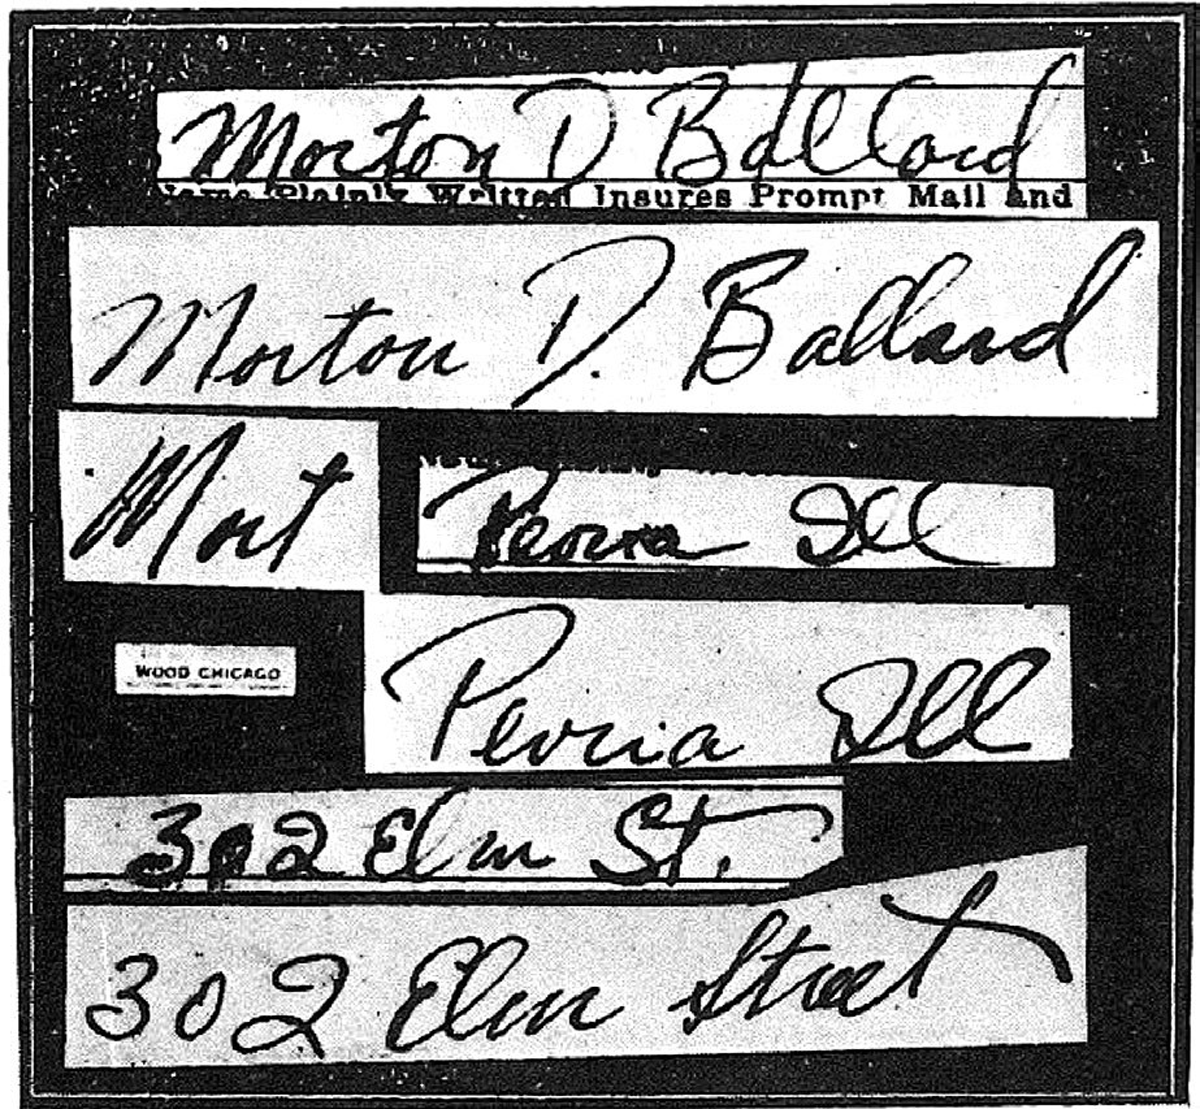 Morton D Ballard
Name Plainly Written Insures Prompt Mail and
Morton D. Ballard
Mort
Peoria Ill
WOOD CHICAGO
Peoria Ill
302 Elm St.
302 Elm Street